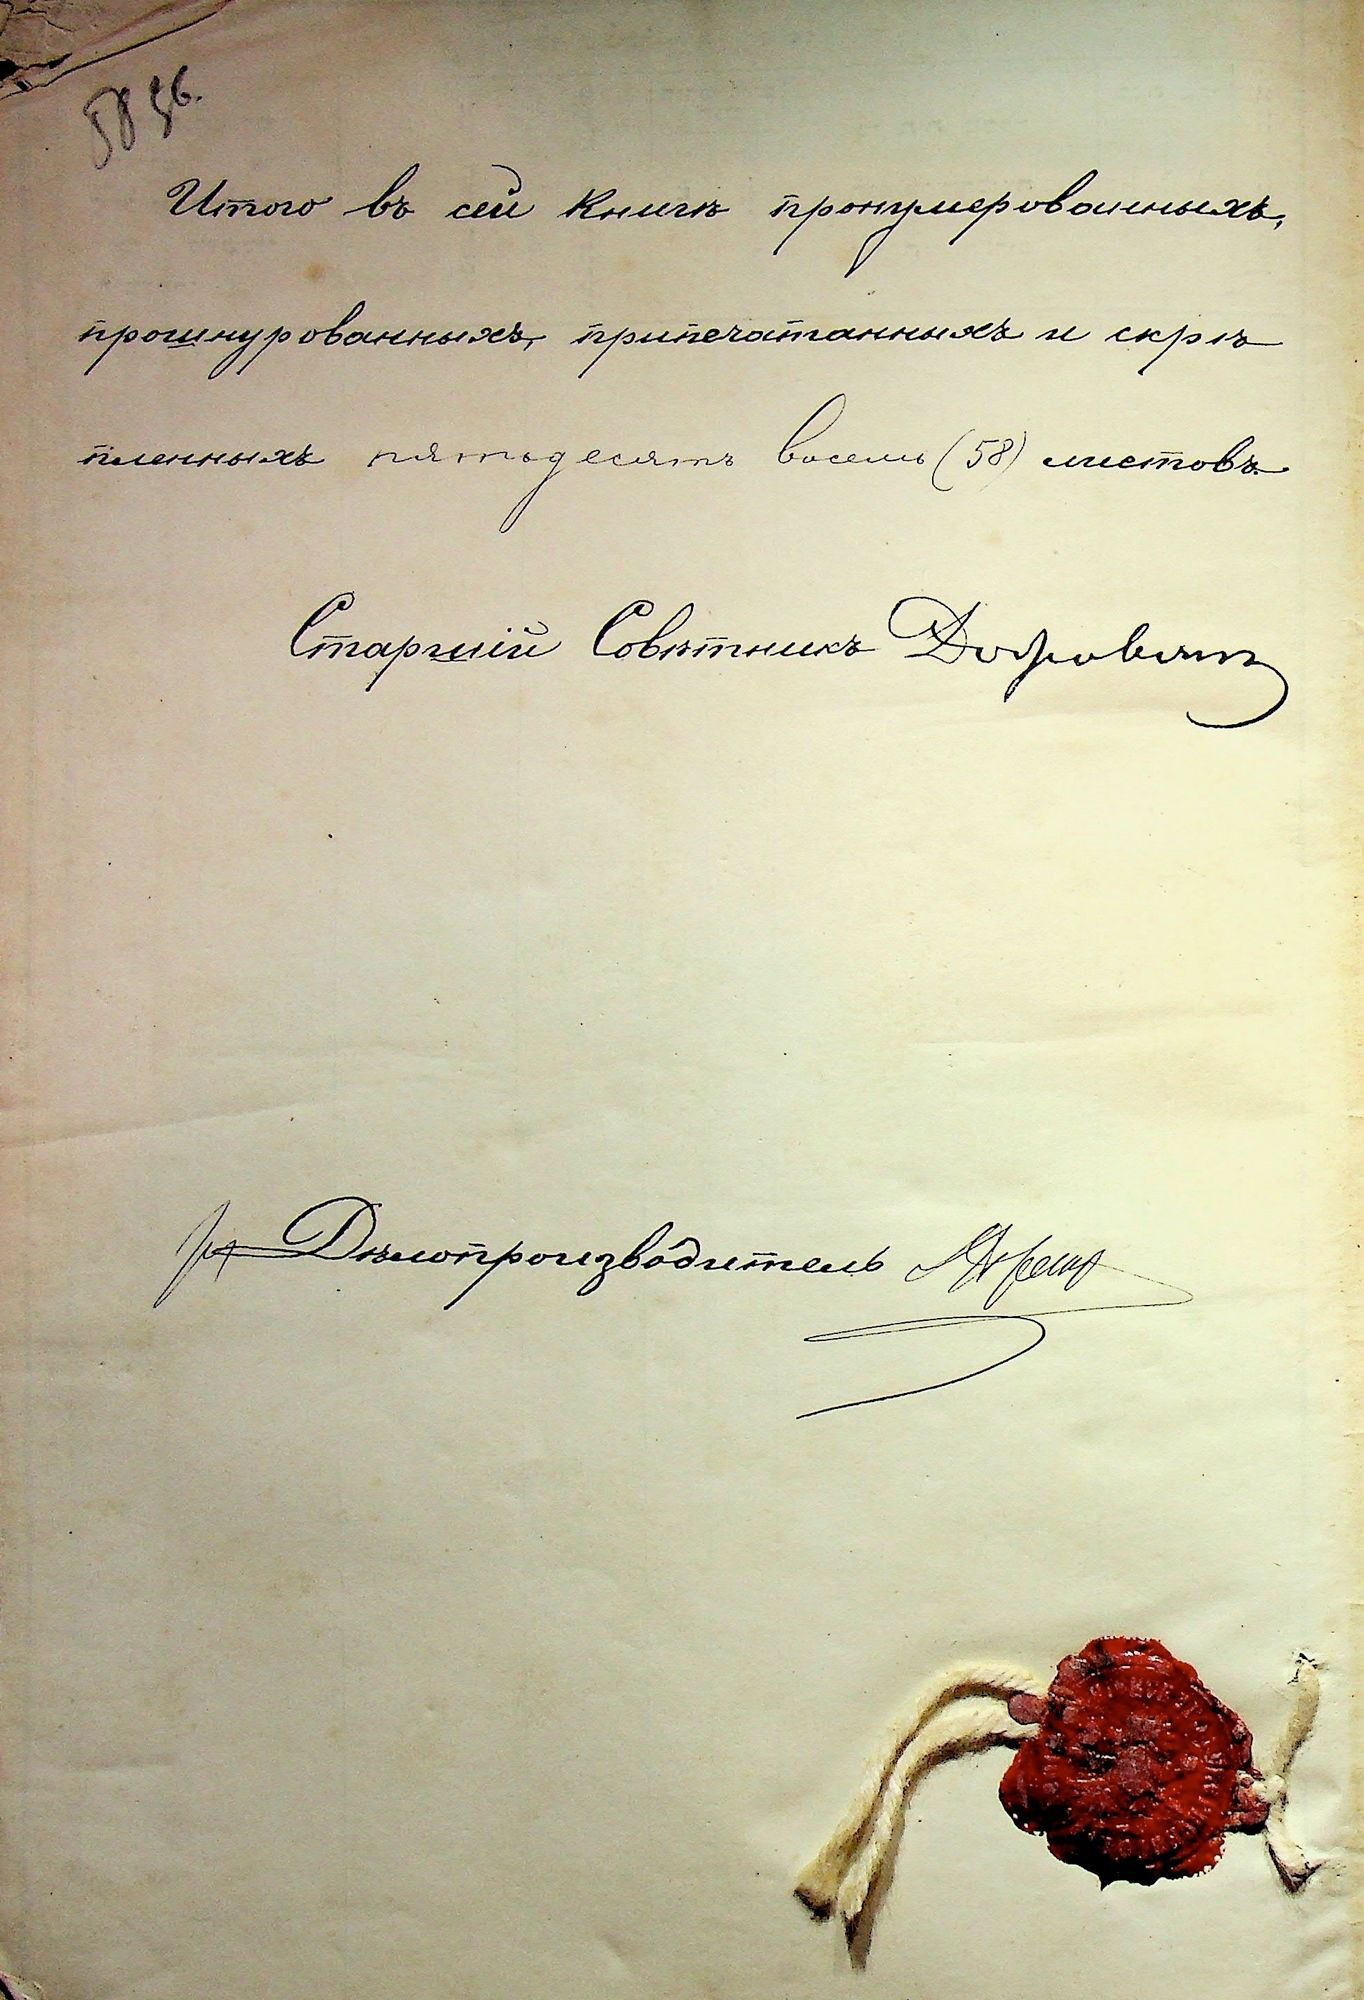 58
Итого въ сей книгѣ пронумерованныхъ,
прошнурованныхъ, припечатанныхъ и скрѣ
пленныхъ пятьдесятъ восемь (58) листовъ.
Старшій Совѣтникъ
Дѣлопроизводитель